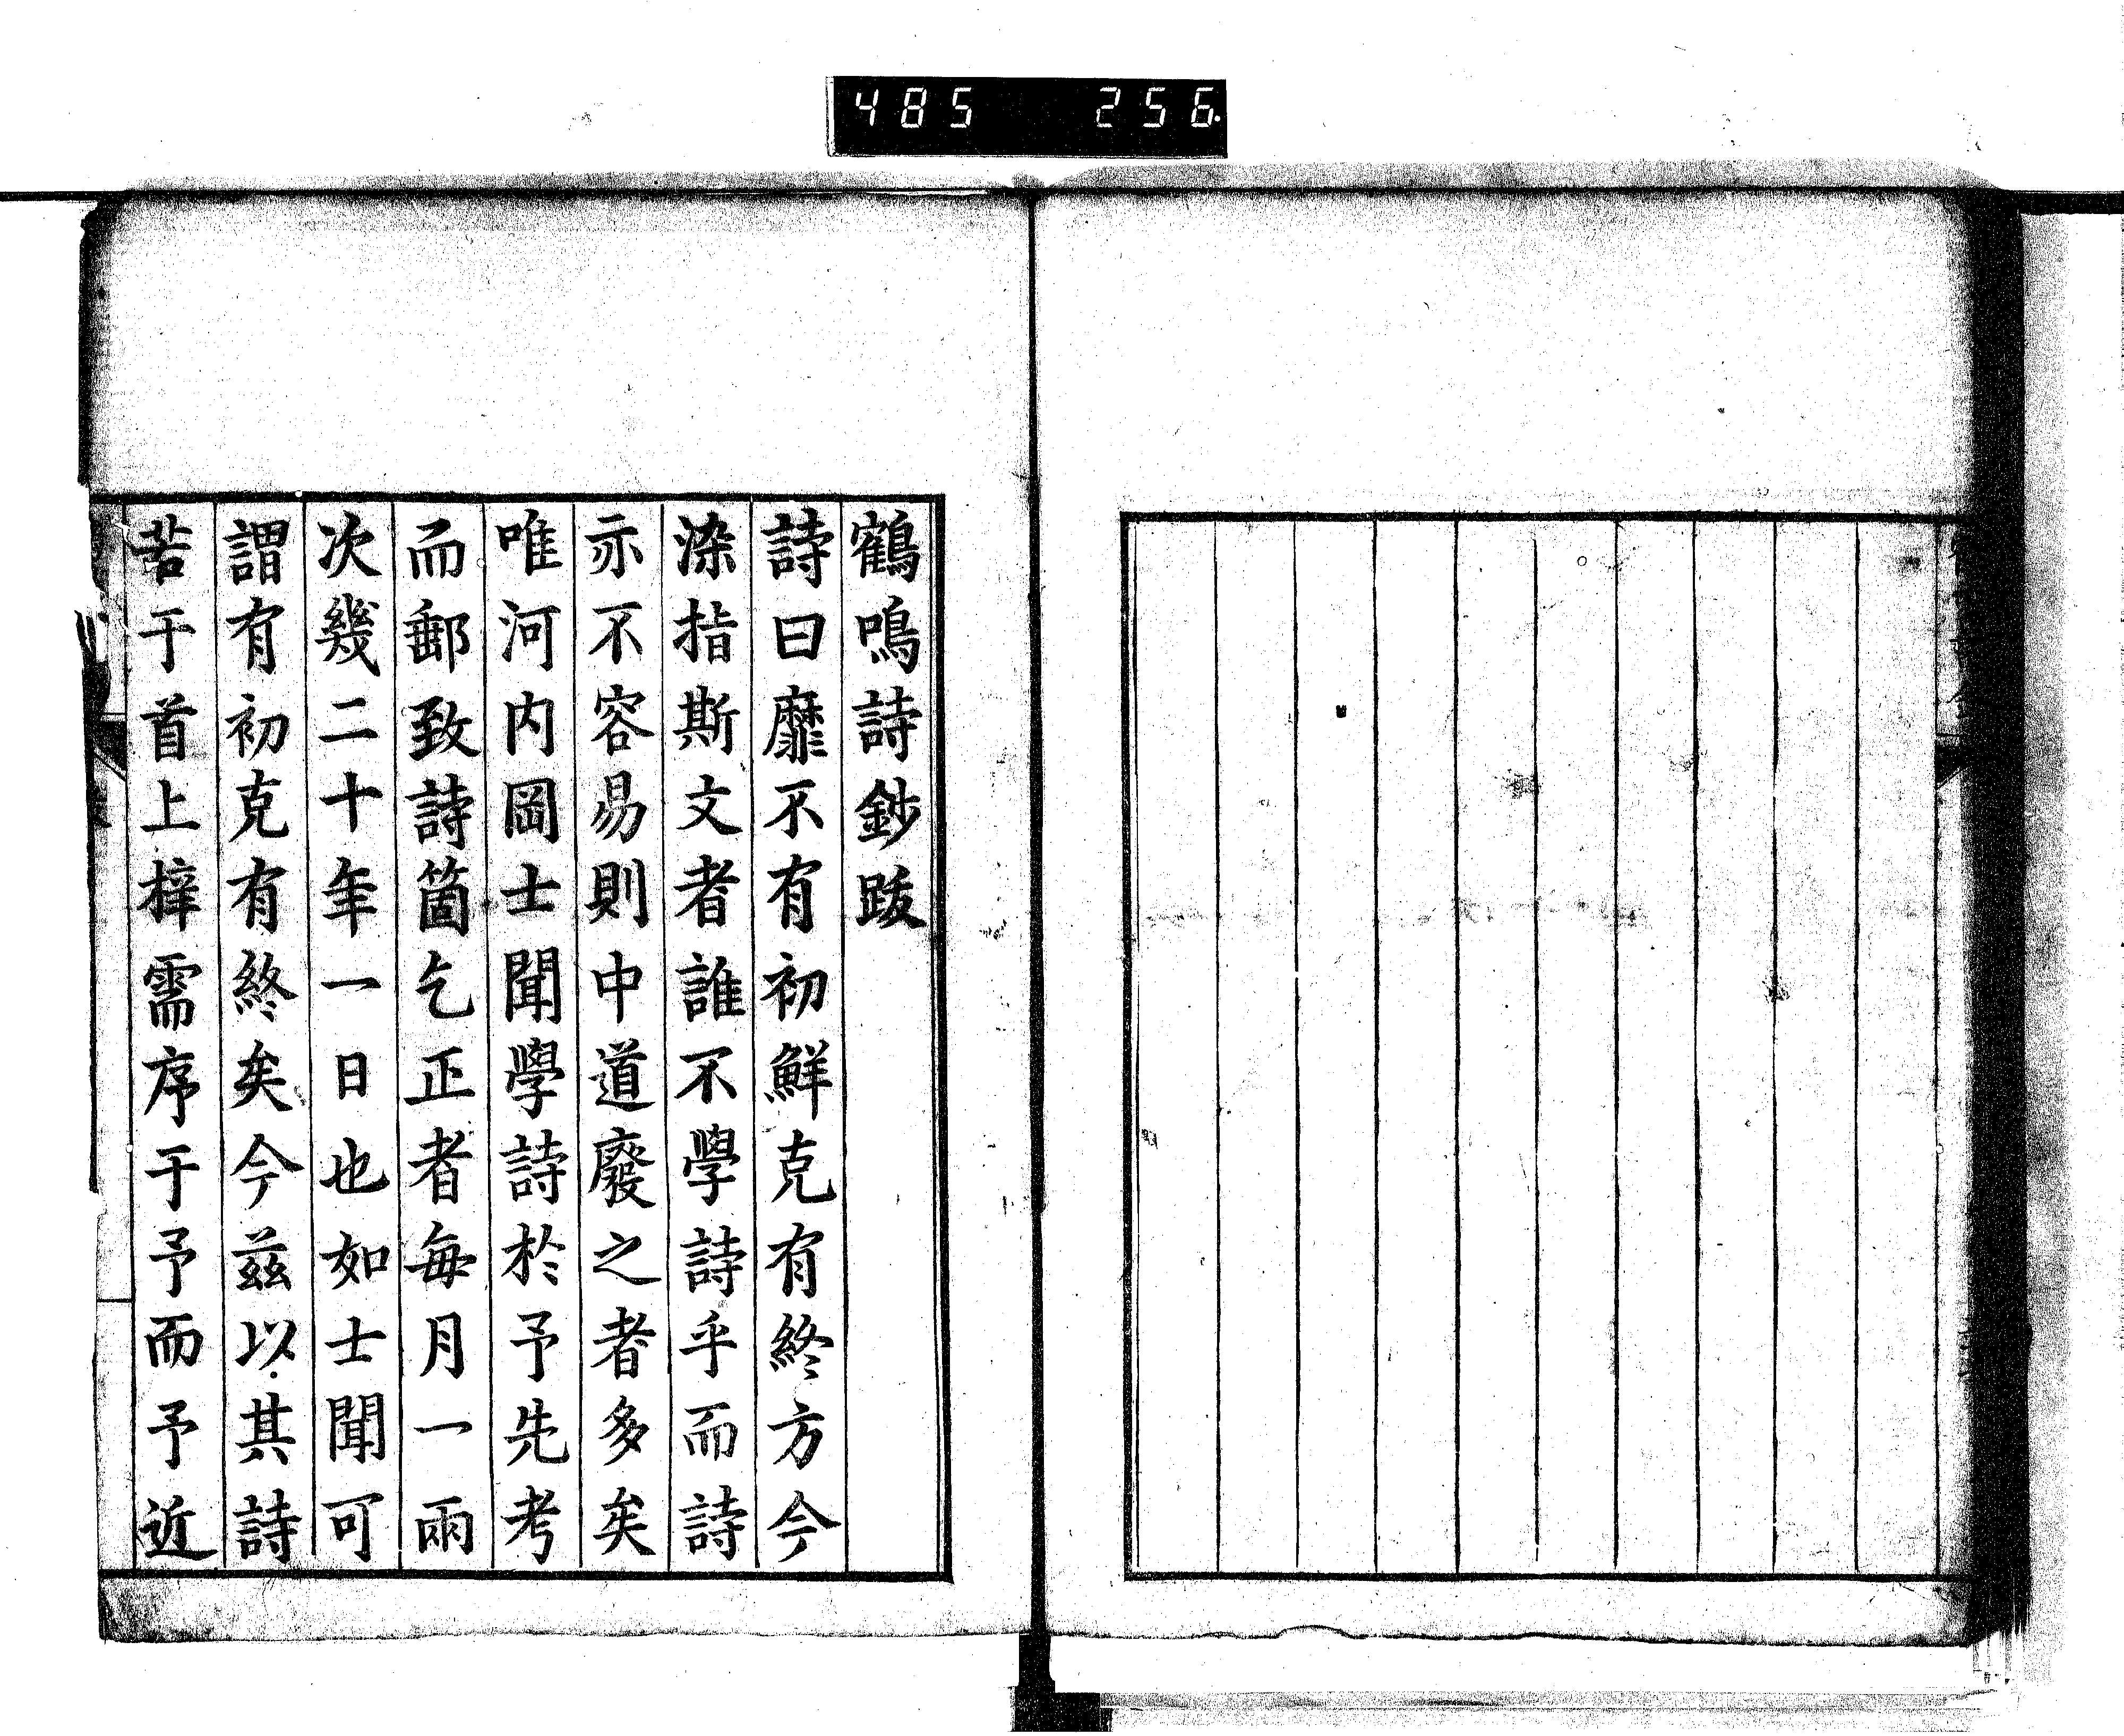 485 256
鶴鳴詩鈔跋
詩曰靡不有初鮮克有終方今
染指斯文者誰不學詩乎而詩
亦不容易則中道廢之者多矣
唯河内岡士聞學詩於予先考
而郵致詩箇乞正者每月一兩
次幾二十年一日也如士聞可
謂有初克有終矣今茲以其詩
若干首上梓需序于予而予近